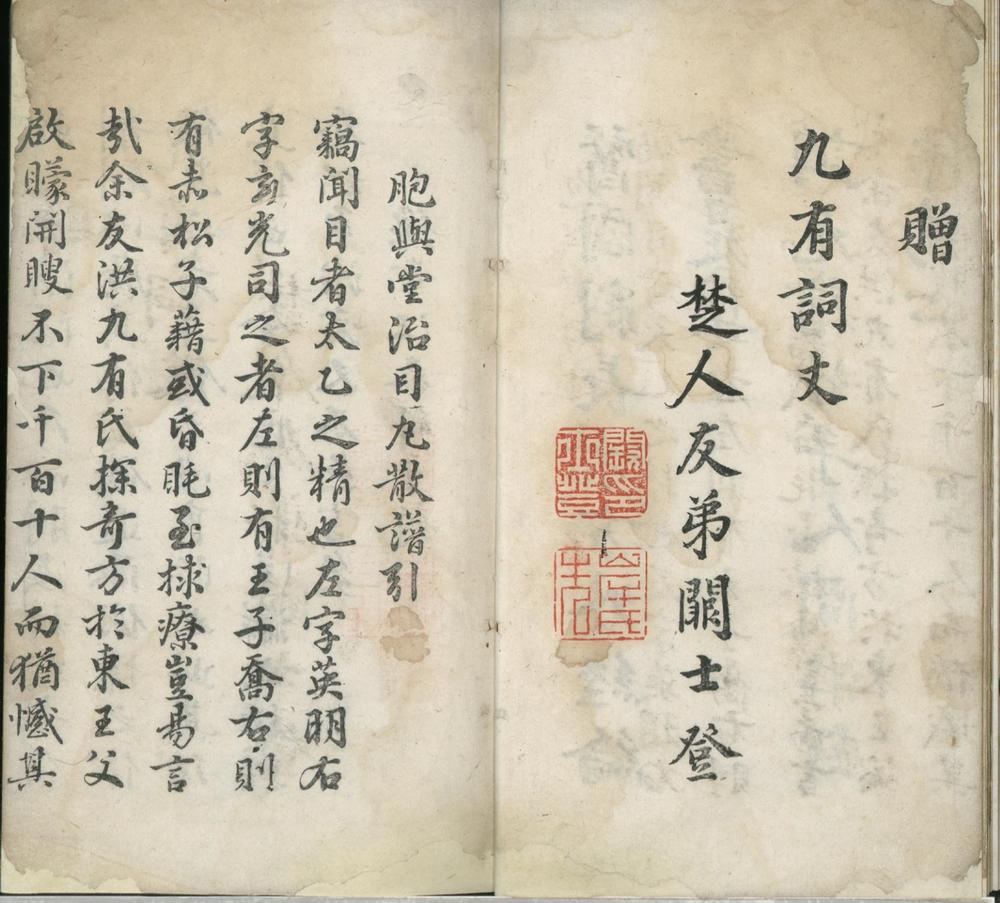 贈
九有詞丈
楚人友弟關士登
胞與堂治目九散譜引
竊聞目者太乙之精也左字英明右
字玄光司之者左則有王子喬右則
有赤松子藉或昏眊至捄療豈易言
哉余友洪九有氏探奇方於東王父
啟矇開瞍不下千百十人而猶憾其